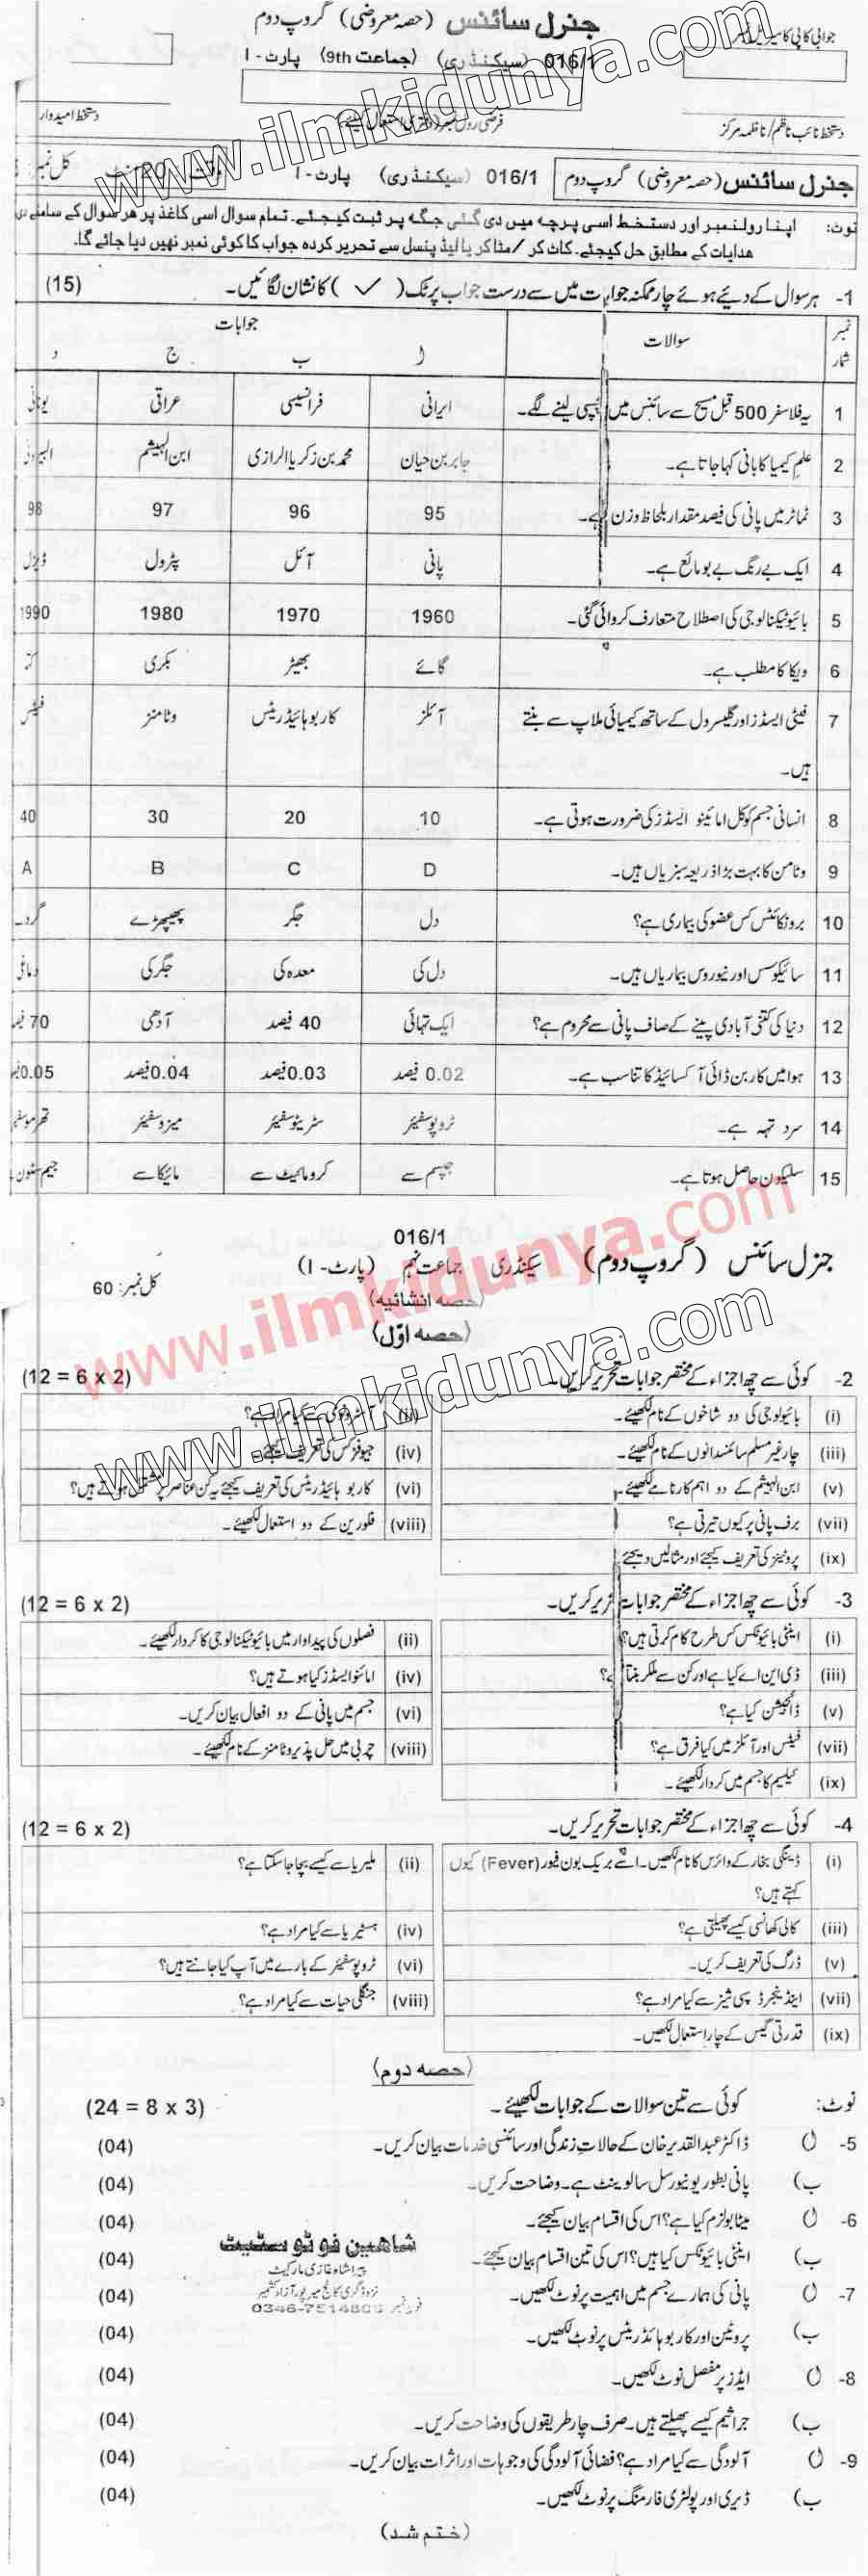 جنرل سائنس (حصہ معروضی) گروپ دوم
016/1 (سیکنڈری) (جماعت 9th) پارٹ - I
جوابی کاپی کا سیریل نمبر
دستخط نائب ناظم/ناظمہ مرکز
دستخط امیدوار
جنرل سائنس (حصہ معروضی) گروپ دوم 016/1 (سیکنڈری) پارٹ - I
کل نمبر:
نوٹ: اپنا رولنمبر اور دستخط اسی پرچہ میں دی گئی جگہ پر ثبت کیجئے۔ تمام سوال اسی کاغذ پر ہر سوال کے سامنے دی
ہدایات کے مطابق حل کیجئے۔ کاٹ کر / مٹا کر یا لیڈ پنسل سے تحریر کردہ جواب کا کوئی نمبر نہیں دیا جائے گا۔
1- ہر سوال کے دیئے ہوئے چار ممکنہ جوابات میں سے درست جواب پر ٹک (✓) کا نشان لگائیں۔ (15)
نمبر شمار سوالات جوابات
ا ب ج د
1 یہ فلاسفر 500 قبل مسیح سے سائنس میں دلچسپی لینے لگے۔ ایرانی فرانسیسی عراقی یونانی
2 علم کیمیا کا بانی کہا جاتا ہے۔ جابر بن حیان محمد بن زکریا الرازی ابن الہیثم البیرونی
3 ٹماٹر میں پانی کی فیصد مقدار بلحاظ وزن ہے۔ 95 96 97 98
4 ایک بے رنگ بے بو مائع ہے۔ پانی آئل پٹرول ڈیزل
5 بائیوٹیکنالوجی کی اصطلاح متعارف کروائی گئی۔ 1960 1970 1980 1990
6 ویکا کا مطلب ہے۔ گائے بھیڑ بکری
7 فیٹی ایسڈز اور گلیسرول کے ساتھ کیمیائی ملاپ سے بنتے ہیں۔ آئلز کاربوہائیڈریٹس وٹامنز فیٹس
8 انسانی جسم کو کل امائینو ایسڈز کی ضرورت ہوتی ہے۔ 10 20 30 40
9 وٹامن کا بہت بڑا ذریعہ سبزیاں ہیں۔ D C B A
10 برونکائٹس کس عضو کی بیماری ہے؟ دل جگر پھیپھڑے گردے
11 سائیکوسس اور نیوروسس بیماریاں ہیں۔ دل کی معدہ کی جگر کی دماغی
12 دنیا کی کتنی آبادی پینے کے صاف پانی سے محروم ہے؟ ایک تہائی 40 فیصد آدھی 70 فیصد
13 ہوا میں کاربن ڈائی آکسائیڈ کا تناسب ہے۔ 0.02 فیصد 0.03فیصد 0.04فیصد 0.05
14 سرد تہہ ہے۔ ٹروپوسفیئر سٹریٹوسفیئر میزوسفیئر تھرموسفیئر
15 سلیکون حاصل ہوتا ہے۔ جپسم سے کرومائیٹ سے مائیکا سے جیم سٹون
016/1
جنرل سائنس (گروپ دوم) سیکنڈری جماعت نہم (پارٹ - I)
کل نمبر: 60
(حصہ انشائیہ)
(حصہ اوّل)
2- کوئی سے چھ اجزاء کے مختصر جوابات تحریر کریں۔ (12 = 6 x 2)
(i) بائیولوجی کی دو شاخوں کے نام لکھیئے۔ (ii) آسٹرونومی سے کیا مراد ہے؟
(iii) چار غیر مسلم سائنسدانوں کے نام لکھیئے۔ (iv) جیوفزکس کی تعریف کیجئے۔
(v) ابن الہیثم کے دو اہم کارنامے لکھیئے۔ (vi) کاربوہائیڈریٹس کی تعریف کیجئے یہ کن عناصر پر مشتمل ہوتے ہیں؟
(vii) برف پانی پر کیوں تیرتی ہے؟ (viii) فلورین کے دو استعمال لکھیئے۔
(ix) پروٹینز کی تعریف کیجئے اور مثالیں دیجئے
3- کوئی سے چھ اجزاء کے مختصر جوابات تحریر کریں۔ (12 = 6 x 2)
(i) اینٹی بائیوٹکس کس طرح کام کرتی ہیں؟ (ii) فصلوں کی پیداوار میں بائیوٹیکنالوجی کا کردار لکھیئے۔
(iii) ڈی این اے کیا ہے اور کن سے ملکر بنتا ہے؟ (iv) امائنو ایسڈز کیا ہوتے ہیں؟
(v) ڈائجیشن کیا ہے؟ (vi) جسم میں پانی کے دو افعال بیان کریں۔
(vii) فیٹس اور آئلز میں کیا فرق ہے؟ (viii) چربی میں حل پذیر وٹامنز کے نام لکھیئے۔
(ix) کیلسیم کا جسم میں کردار لکھیئے۔
4- کوئی سے چھ اجزاء کے مختصر جوابات تحریر کریں۔ (12 = 6 x 2)
(i) ڈینگی بخار کے وائرس کا نام لکھیں۔ اسے بریک بون فیور (Fever) کیوں کہتے ہیں؟ (ii) ملیریا سے کیسے بچا جا سکتا ہے؟
(iii) کالی کھانسی کیسے پھیلتی ہے؟ (iv) ہسٹیریا سے کیا مراد ہے؟
(v) ڈرگ کی تعریف کریں۔ (vi) ٹروپوسفیئر کے بارے میں آپ کیا جانتے ہیں؟
(vii) اینڈینجرڈ سپی شیز سے کیا مراد ہے؟ (viii) جنگلی حیات سے کیا مراد ہے؟
(ix) قدرتی گیس کے چار استعمال لکھیں۔
(حصہ دوم)
نوٹ: کوئی سے تین سوالات کے جوابات لکھیئے۔ (24 = 8 x 3)
5- ا) ڈاکٹر عبدالقدیر خان کے حالات زندگی اور سائنسی خدمات بیان کریں۔ (04)
ب) پانی بطور یونیورسل سالوینٹ ہے۔ وضاحت کریں۔ (04)
6- ا) میٹابولزم کیا ہے؟ اس کی اقسام بیان کیجئے۔ (04)
ب) اینٹی بائیوٹکس کیا ہیں؟ اس کی تین اقسام بیان کیجئے۔ (04)
7- ا) پانی کی ہمارے جسم میں اہمیت پر نوٹ لکھیں۔ (04)
ب) پروٹین اور کاربوہائڈریٹس پر نوٹ لکھیں۔ (04)
8- ا) ایڈز پر مفصل نوٹ لکھیں۔ (04)
ب) جراثیم کیسے پھیلتے ہیں۔ صرف چار طریقوں کی وضاحت کریں۔ (04)
9- ا) آلودگی سے کیا مراد ہے؟ فضائی آلودگی کی وجوہات اور اثرات بیان کریں۔ (04)
ب) ڈیری اور پولٹری فارمنگ پر نوٹ لکھیں۔ (04)
(ختم شد)
شاھین فوٹو سٹیٹ
پیرا شاہ غازی مارکیٹ
نزد ڈگری کالج میرپور آزاد کشمیر
www.ilmkidunya.com
www.ilmkidunya.com
www.ilmkidunya.com